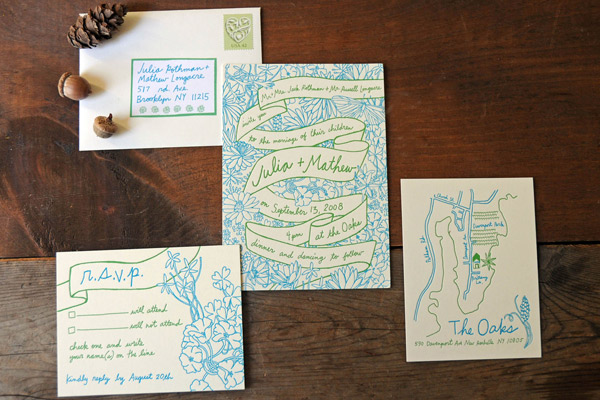 USA 42
Julia Rothman +
Mathew Longacre
517 3rd Ave
Brooklyn NY 11215
Mr. + Mrs. Jack Rothman + Mr. Russell Longacre
invite you
to the marriage of their children
Julia + Mathew
on September 13, 2008
4pm at the Oaks
dinner and dancing to follow
r.s.v.p.
will attend
will not attend
check one and write
your name(s) on the line
Kindly reply by August 20th
Pelham Rd
Davenport Ave
Davenport Park
The Oaks
550 Davenport Ave New Rochelle NY 10805